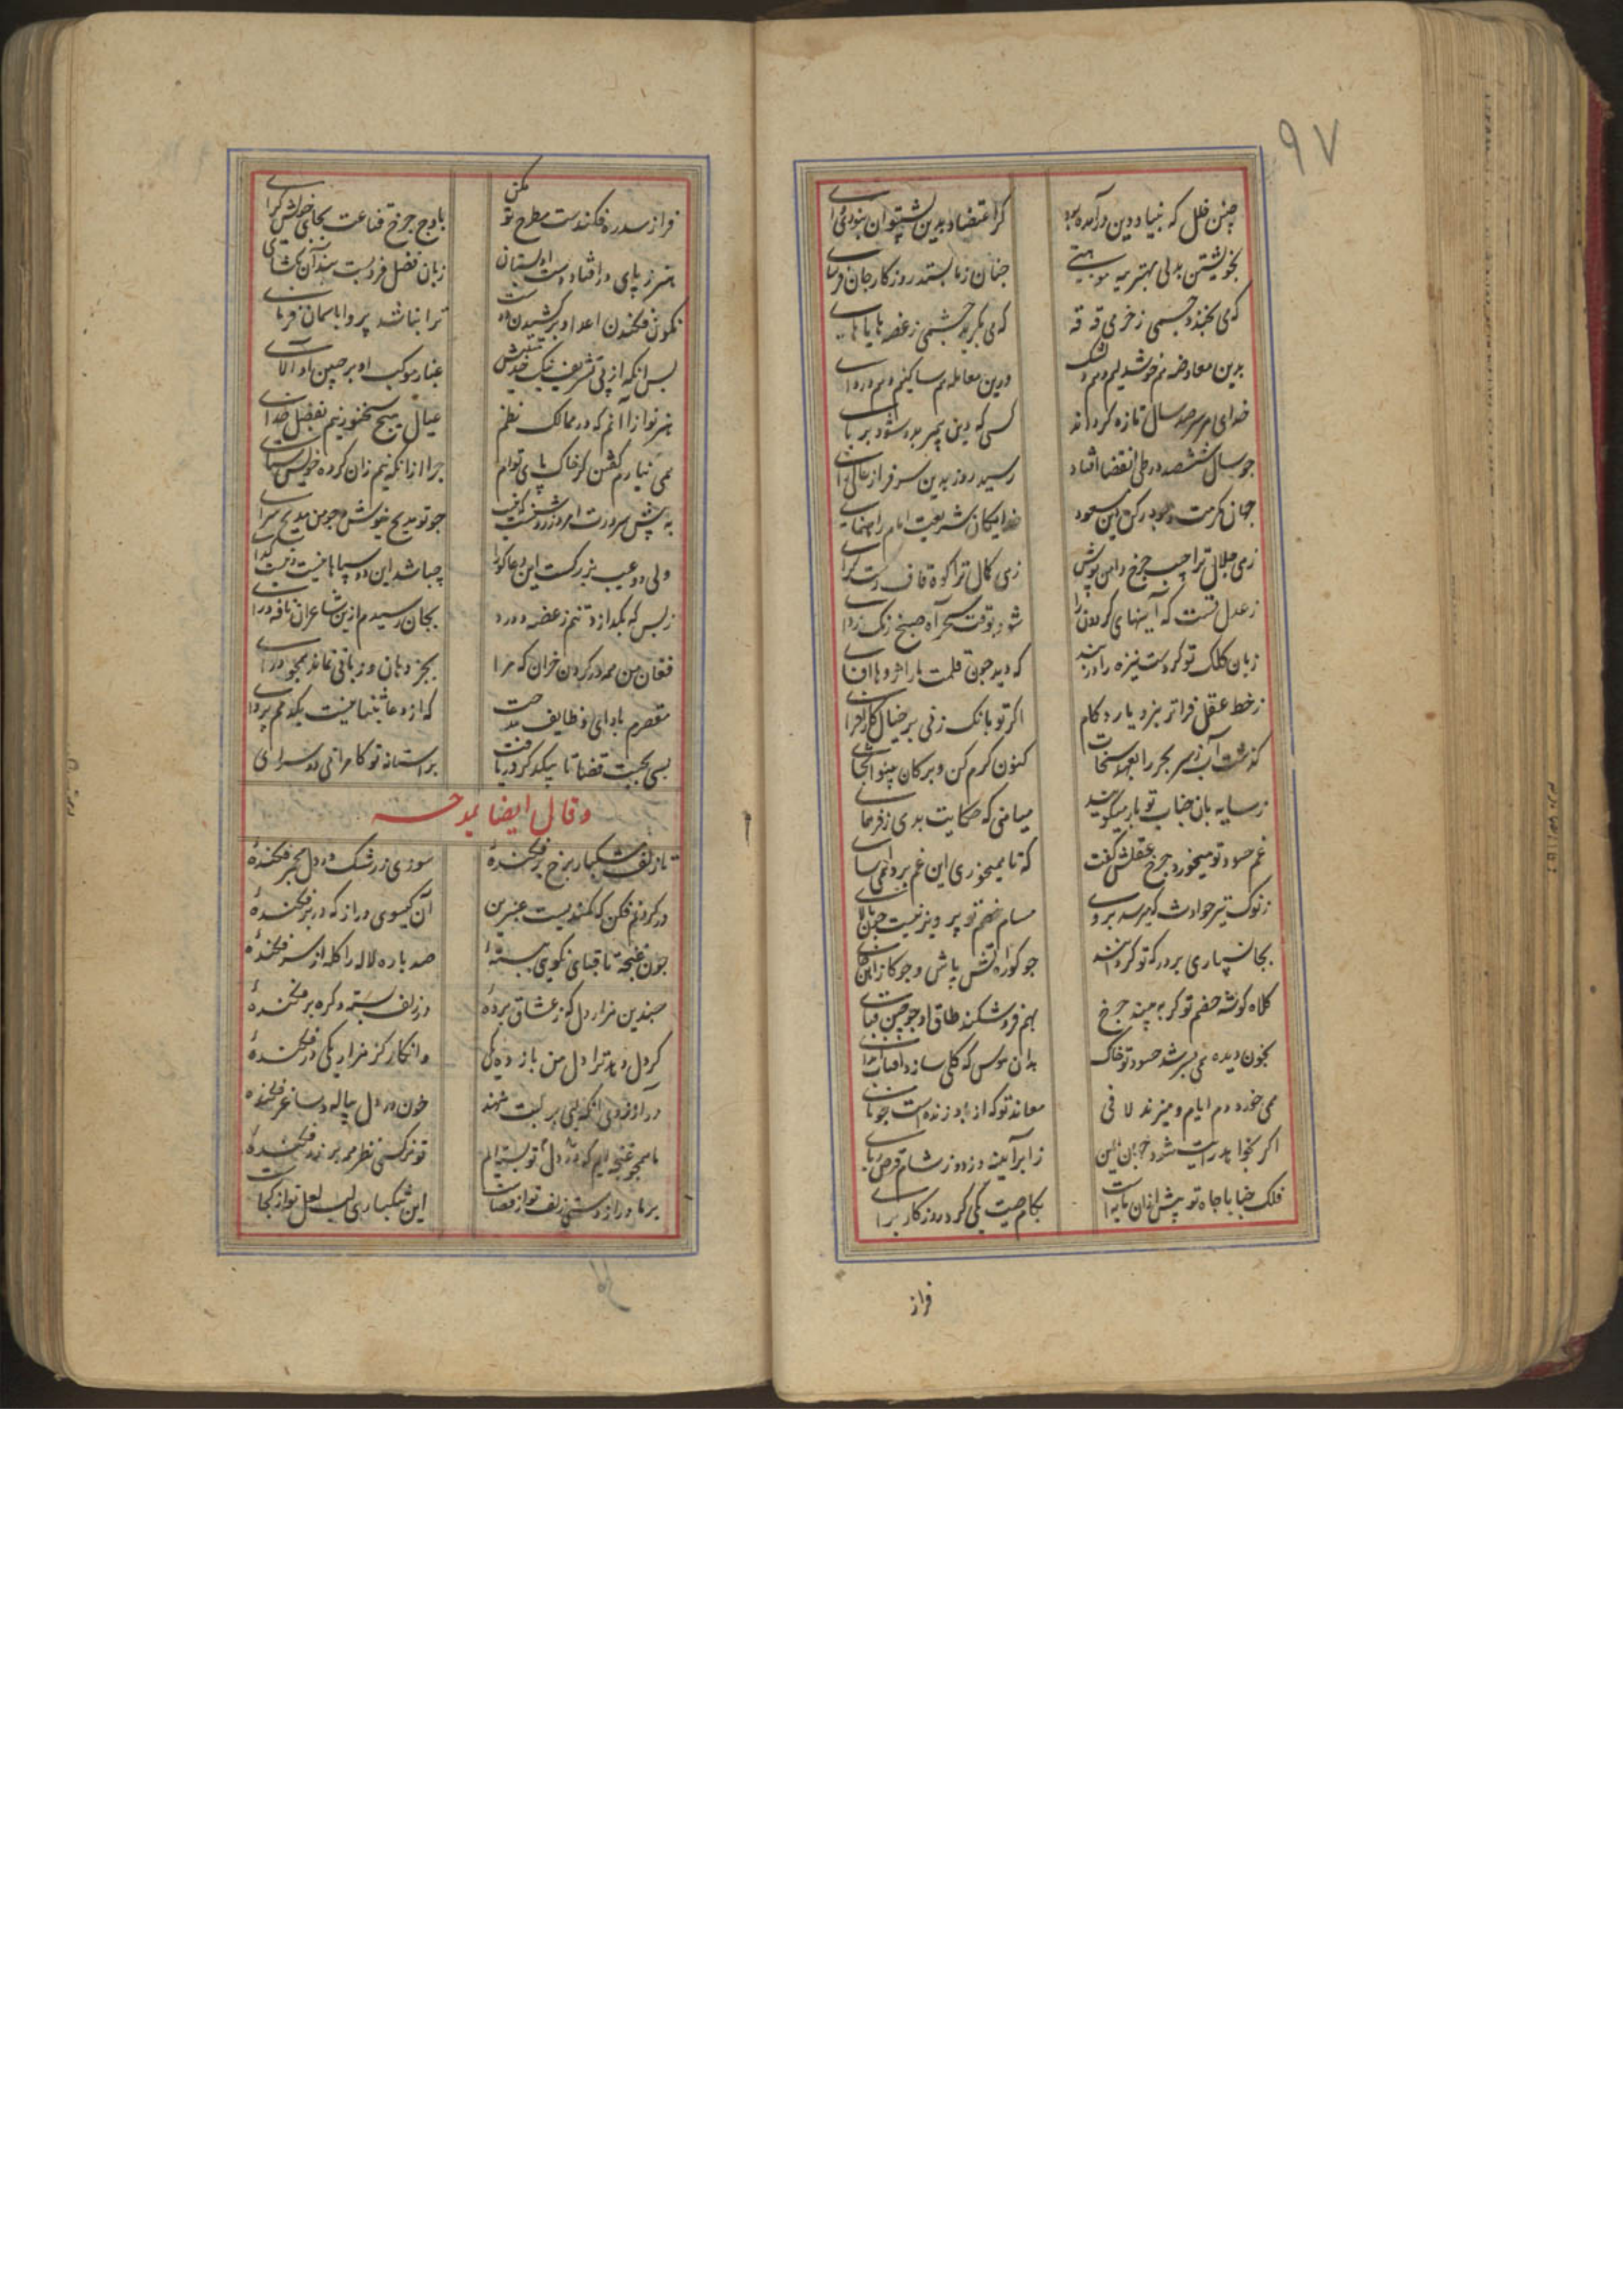 ۹۷
چنین خلل که ببنیاد دین درآمده بود
کر اعتضاد بدین پشتوان نبودی وای
بخویشتن بدلی بهتر موهبتی
چنان زما بستد روزکار جان فرسای
که می بخندد چشمی ز خرمی قه قه
که می بکرید چشمی ز غصه هایاهای
بدین معاوضه هم خوشدلیم و هم
درین معامله هم ساکنیم و هم دروای
خدای بر سر هر صد سال تازه کرداند
کسی که دین پیمبر بدو شود بر پای
جو سال ششصد در طی انقضا افتاد
رسید روز بدین سرفراز عالی رای
جهان مکرمت وجود رکن دین مسعود
خدایکان شریعت امام راهنمای
زهی جلال ترا جیب چرخ دامن پوش
زهی کمال ترا کوه قاف دست کرای
ز عدل تست که آینهای کردون را
شود بوقت سحر آه صبح زنک زدای
زبان کلک تو کردست نیزه را در بند
که دید جون قلمت مار اژدها افسای
ز خط عقل فراتر نزد یارد کام
اکر تو بانک زنی بر خیال کارافزای
کذشت آب ز سر بحر را بعهد سخات
کنون کرم کن و بر کان بینوا بخشای
ز سایه بان جناب تو باز میکویند
میامنی که حکایت بدی ز فر همای
غم حسود تو میخورد جرخ عقلش کفت
که تا نمیخوری این غم برو همی آسای
ز نوک تیر حوادث که میرسد بروی
مسام خصم تو پرویزنیست خون پالای
بجان سپاری بر درکه تو کردانند
جو کوره آتش پاش و جو کاز آهن خای
کلاه کوشه خصم تو کر به بیند چرخ
بهم فروشکند طاق او جو چین قبای
بخون دیده همی سرشد حسود تو خاک
بدان هوس که کلی سازد آفتاب اندای
همی خورد دم ایام و میزند لافی
معاند تو که از باد زنده است جو نای
اکر بخواهد رایت شود
ز ابر آینه دزد و ز شام قرص ربای
فلک جنابا جاه تو پیش ازان
بکام حیت یکی کرد روزکار برای
فراز
فراز سدره فکندست مطرح تو مکن
باوج جرخ قناعت بجای خویش کرای
هنر ز پای درافتاد دست او بستان
زبان فضل فروبست بند آن بکشای
نکون فکندن اعدا و برکشیدن دوست
ترا نباشد پروا باسمان فرمای
بس انکه از پی تشریف نیک خدمتیش
غبار موکب او بر جبین او آلای
هنر نوازا آنم که در ممالک نظم
عیال هیچ سخنور نیم بفضل خدای
نمی نیارم کفتن کر خاک پای توام
جرا از انکه نیم زان کروه خویش ستای
به پیش سرورت امروز روشنست که نیست
جو تو مدیح نیوش و جو من مدیح سرای
ولی دو عیب بزرکست این دعا کو را
چه باشد این دو سپاهانیست و نیست کدای
ز بس که بکدازد تنم ز غصه و درد
بجان رسیدم ازین شاعران یافه درای
فغان من همه در کردن خران که مرا
بجز دهان و زبانی نماند همجو درای
مقصرم بادای وظایف مدحت
که از دعا بثنا نیست یکدمم پروای
بسی بجست قضا تا بیک دکر دریافت
بر استانه تو کامرانی دو سرای
وقال ایضا یمدحه
تا زلف مشکبار برخ بر فکنده‌ٔ
سوزی ز رشک در دل مجمر فکنده‌ٔ
در کردنم فکن که کمندیست عنبرین
آن کیسوی دراز که در بر فکنده‌ٔ
جون غنجه تا قبای نکویی ببسته‌ٔ
صد باره لاله را کله از سر فکنده‌ٔ
جندین هزار دل که ز عشاق برده‌ٔ
در زلف بسته و کره بر فکنده‌ٔ
کر دل دهد ترا دل من باز ده یکی
وانکار کز هزار یکی در فکنده‌ٔ
در آرزوی انکه لبی بر لبت نهند
خون در دل پیاله و ساغر فکنده‌ٔ
ما همجو غنجه ایم که در دل تو بسته ایم
تو نرکسی نظر همه بر زر فکنده‌ٔ
بر ما دراز دستی زلف تو از قضاست
این شکباری لب لعل تو از کجاست